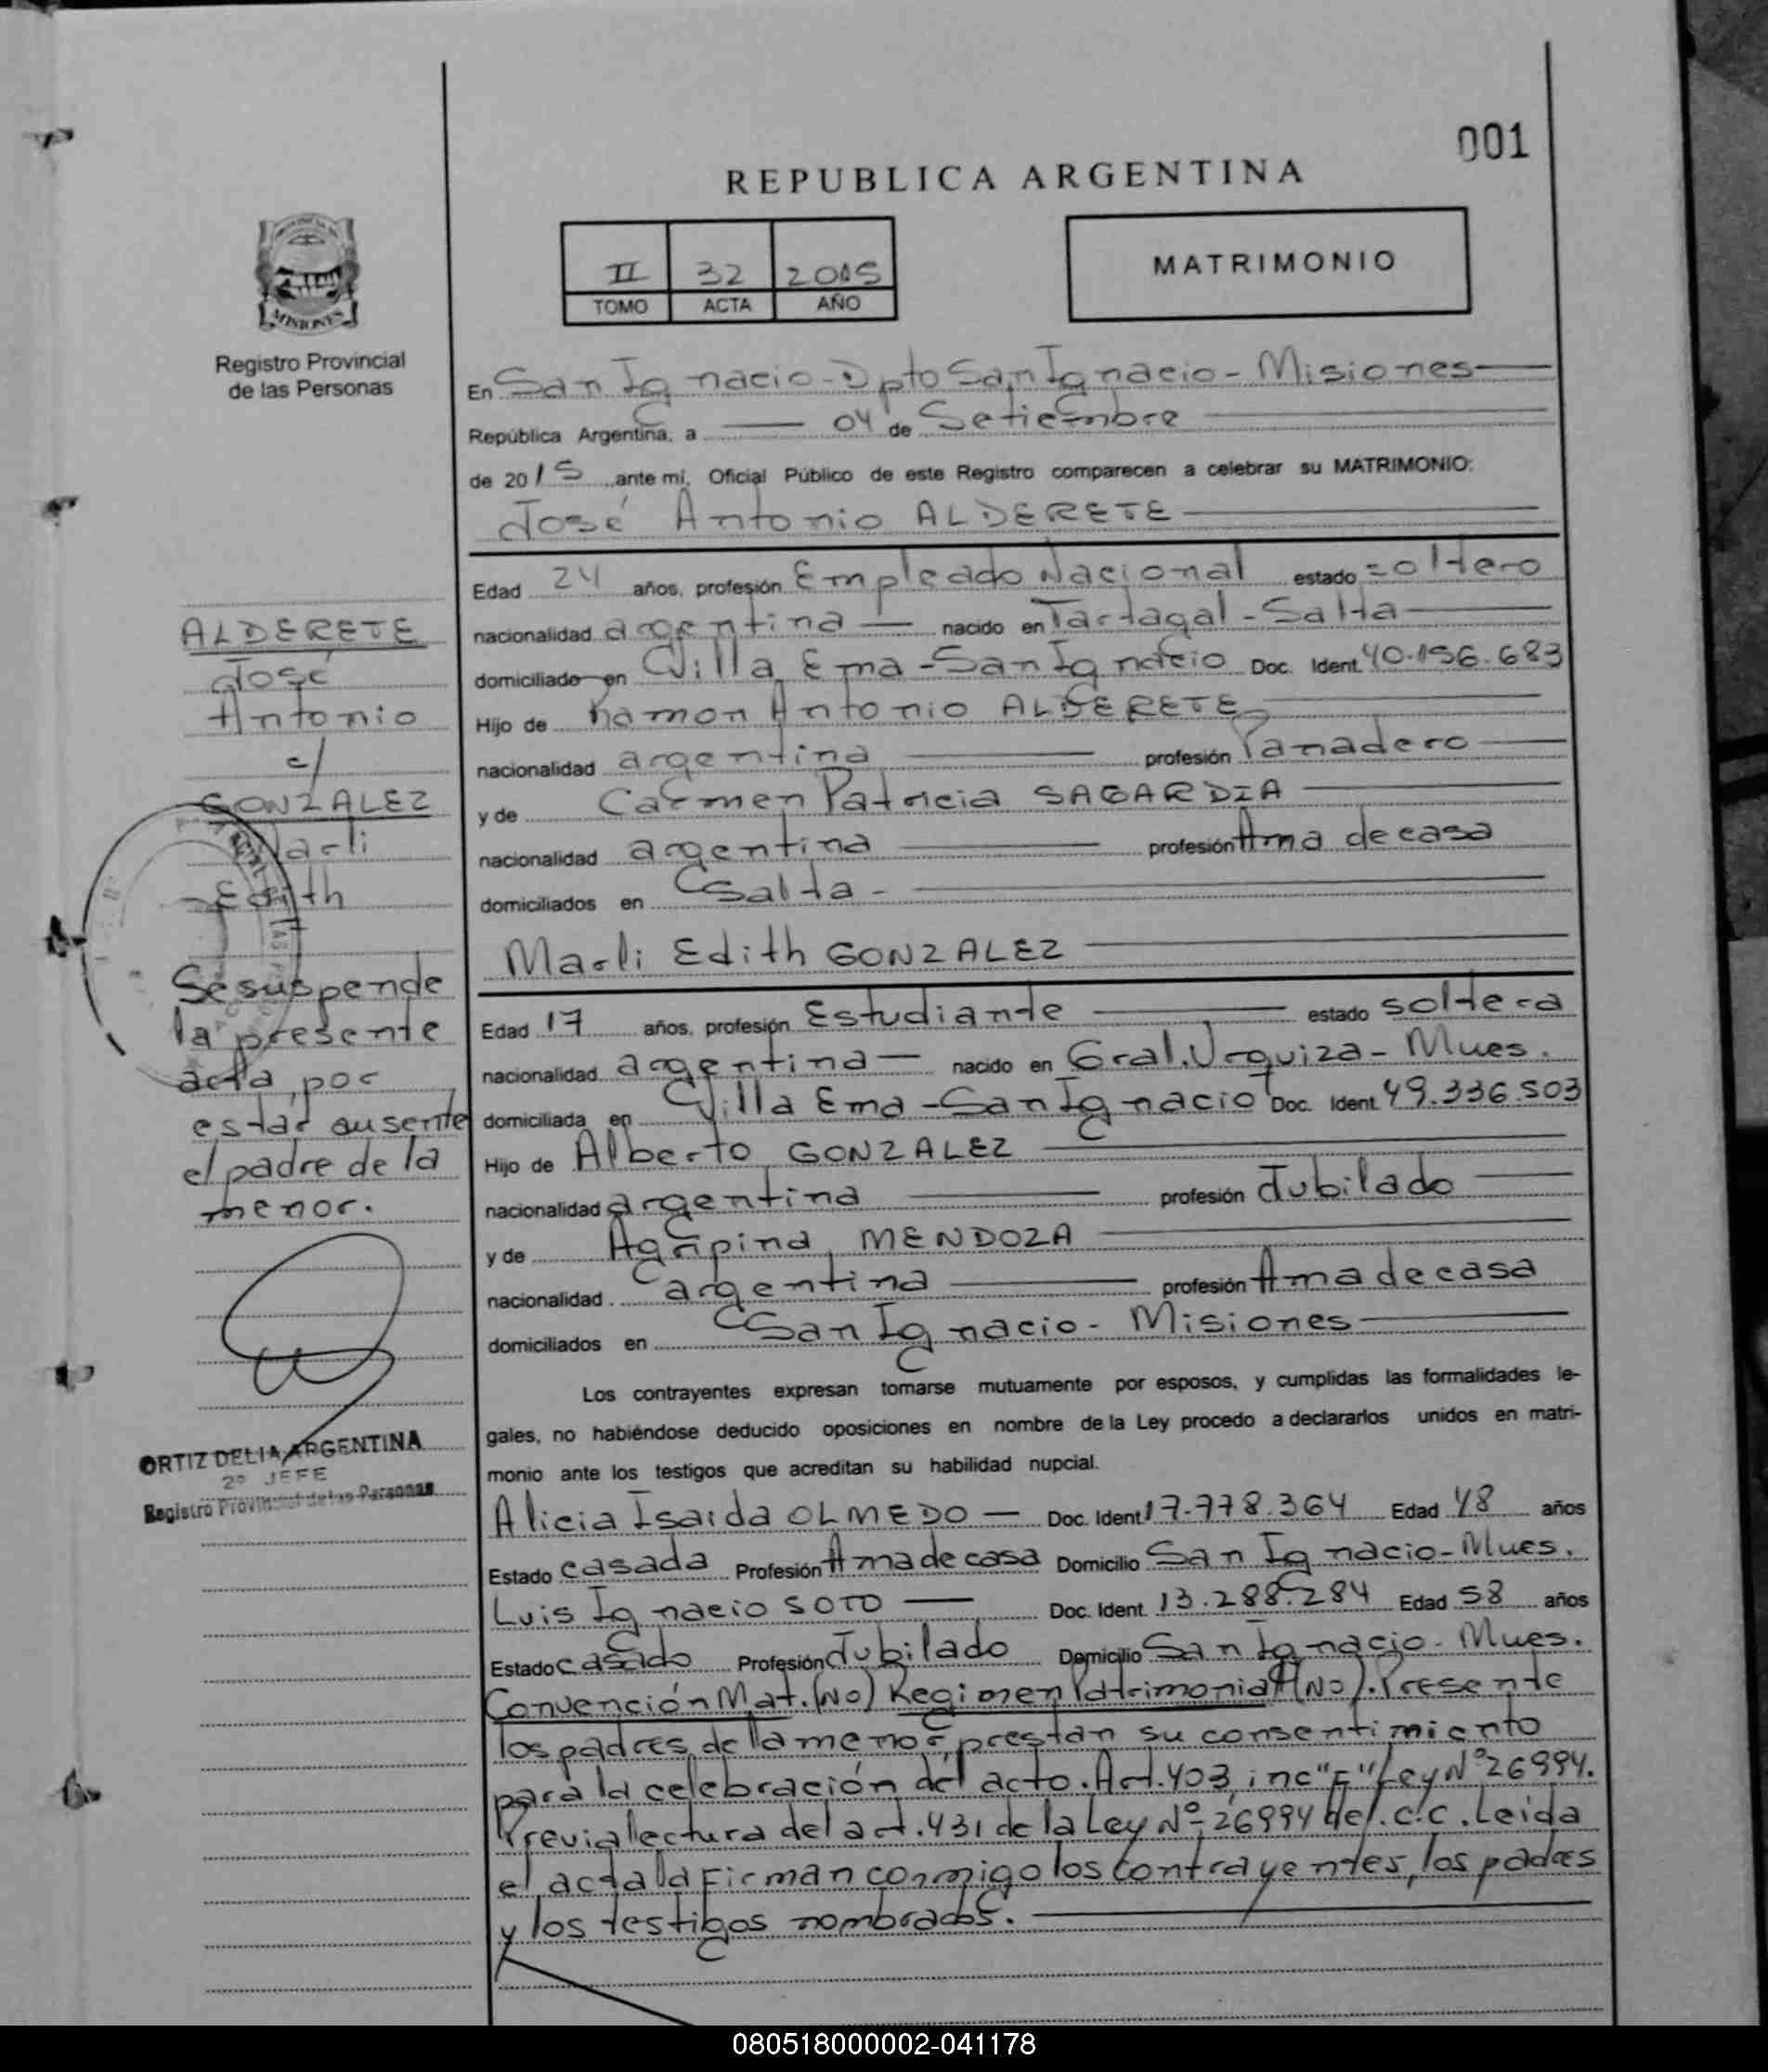 001
REPUBLICA ARGENTINA
II 32 2015
TOMO ACTA AÑO
MATRIMONIO
MISIONES
Registro Provincial
de las Personas
En San Ignacio - Dpto San Ignacio - Misiones
República Argentina, a 04 de Setiembre
de 2015 ante mí, Oficial Público de este Registro comparecen a celebrar su MATRIMONIO:
José Antonio ALDERETE
Edad 24 años, profesión Empleado Nacional estado soltero
nacionalidad argentina nacido en Tartagal - Salta
domiciliado en Villa Ema - San Ignacio Doc. Ident. 40.156.683
Hijo de Ramon Antonio ALDERETE
nacionalidad argentina profesión Panadero
y de Carmen Patricia SAGARDIA
nacionalidad argentina profesión Ama de casa
domiciliados en Salta -
Marli Edith GONZALEZ
Edad 17 años, profesión Estudiante estado soltera
nacionalidad argentina nacido en Gral. Urquiza - Mnes.
domiciliada en Villa Ema - San Ignacio Doc. Ident. 49.336.503
Hijo de Alberto GONZALEZ
nacionalidad argentina profesión Jubilado
y de Agripina MENDOZA
nacionalidad argentina profesión Ama de casa
domiciliados en San Ignacio - Misiones
Los contrayentes expresan tomarse mutuamente por esposos, y cumplidas las formalidades le-
gales, no habiéndose deducido oposiciones en nombre de la Ley procedo a declararlos unidos en matri-
monio ante los testigos que acreditan su habilidad nupcial.
Alicia Isaida OLMEDO Doc. Ident. 17.778.364 Edad 48 años
Estado casada Profesión Ama de casa Domicilio San Ignacio - Mnes.
Luis Ignacio SOTO Doc. Ident. 13.288.284 Edad 58 años
Estado casado Profesión Jubilado Domicilio San Ignacio - Mnes.
Convención Mat. (No) Regimen Patrimonial (No). Presente
los padres de la menor, prestan su consentimiento
para la celebración del acto. Art. 403, inc "F" Ley Nº 26994.
Previa lectura del art. 431 de la Ley Nº 26994 del. C.C. Leida
el acta la Firman conmigo los contrayentes, los padres
y los testigos nombrados.
ALDERETE
José
Antonio
c/
GONZALEZ
Marli
Edith
Se suspende
la presente
acta, por
estar ausente
el padre de la
menor.
ORTIZ DELIA ARGENTINA
2º JEFE
Registro Provincial de las Personas
080518000002-041178